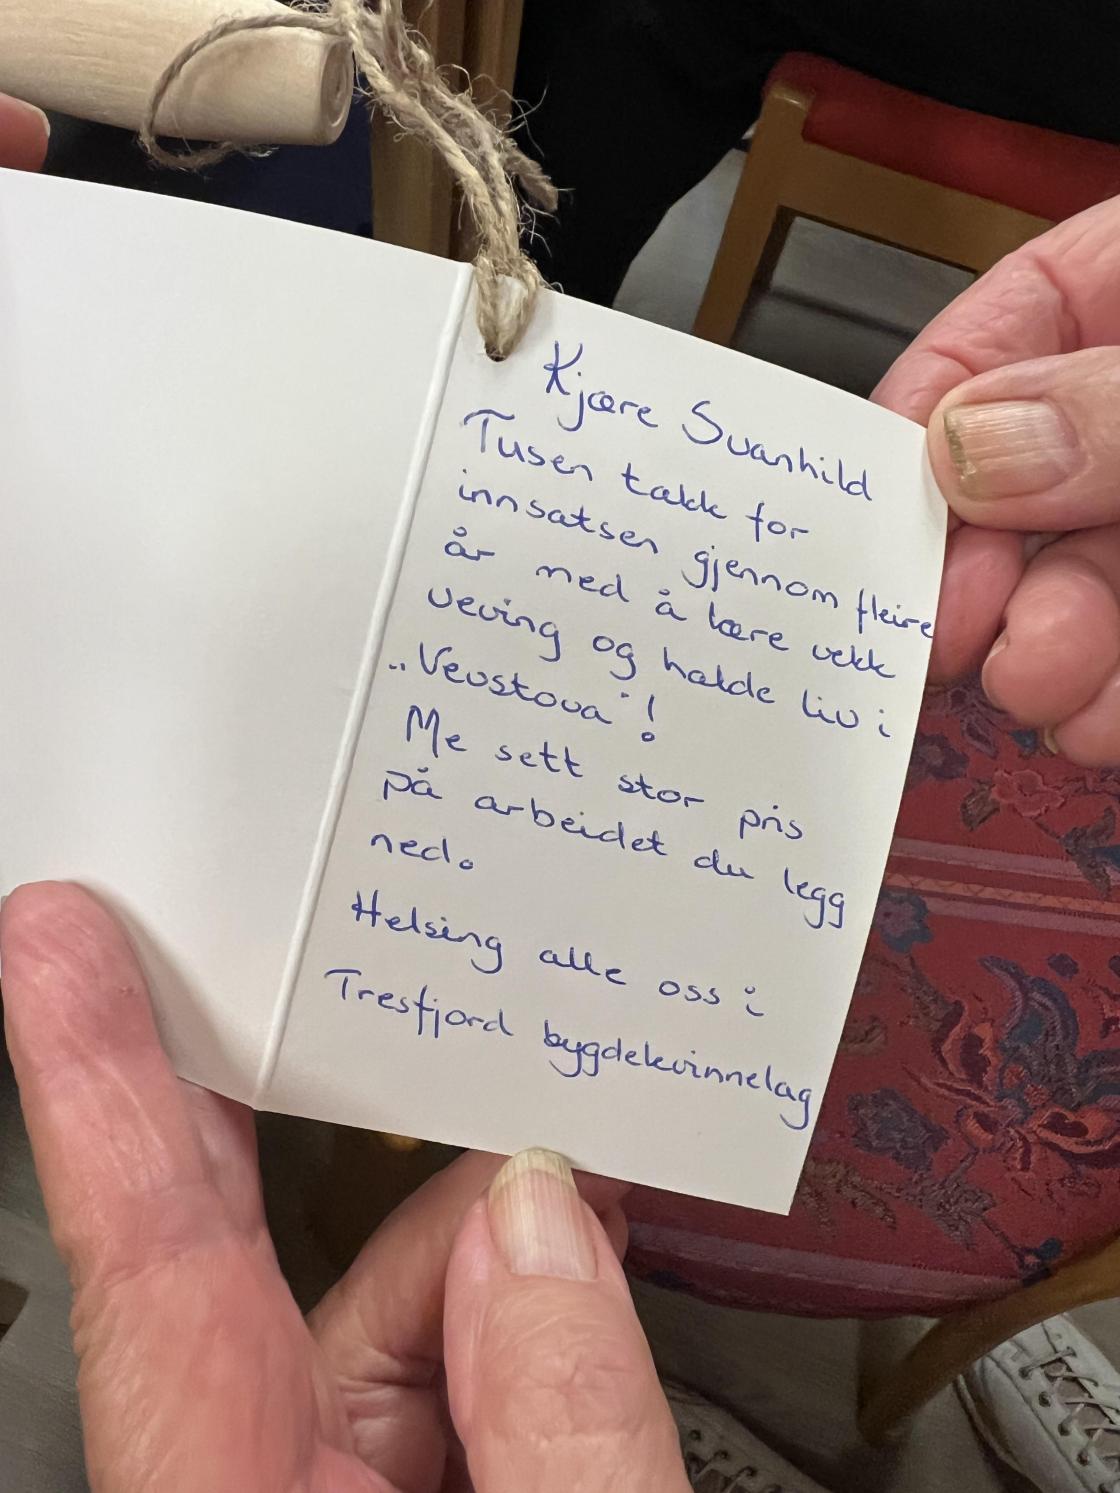 Kjære Svanhild
Tusen takk for
innsatsen gjennom fleire
år med å lære vekk
veving og halde liv i
„Vevstova"!
Me sett stor pris
på arbeidet du legg
ned.
Helsing alle oss i
Tresfjord bygdekvinnelag